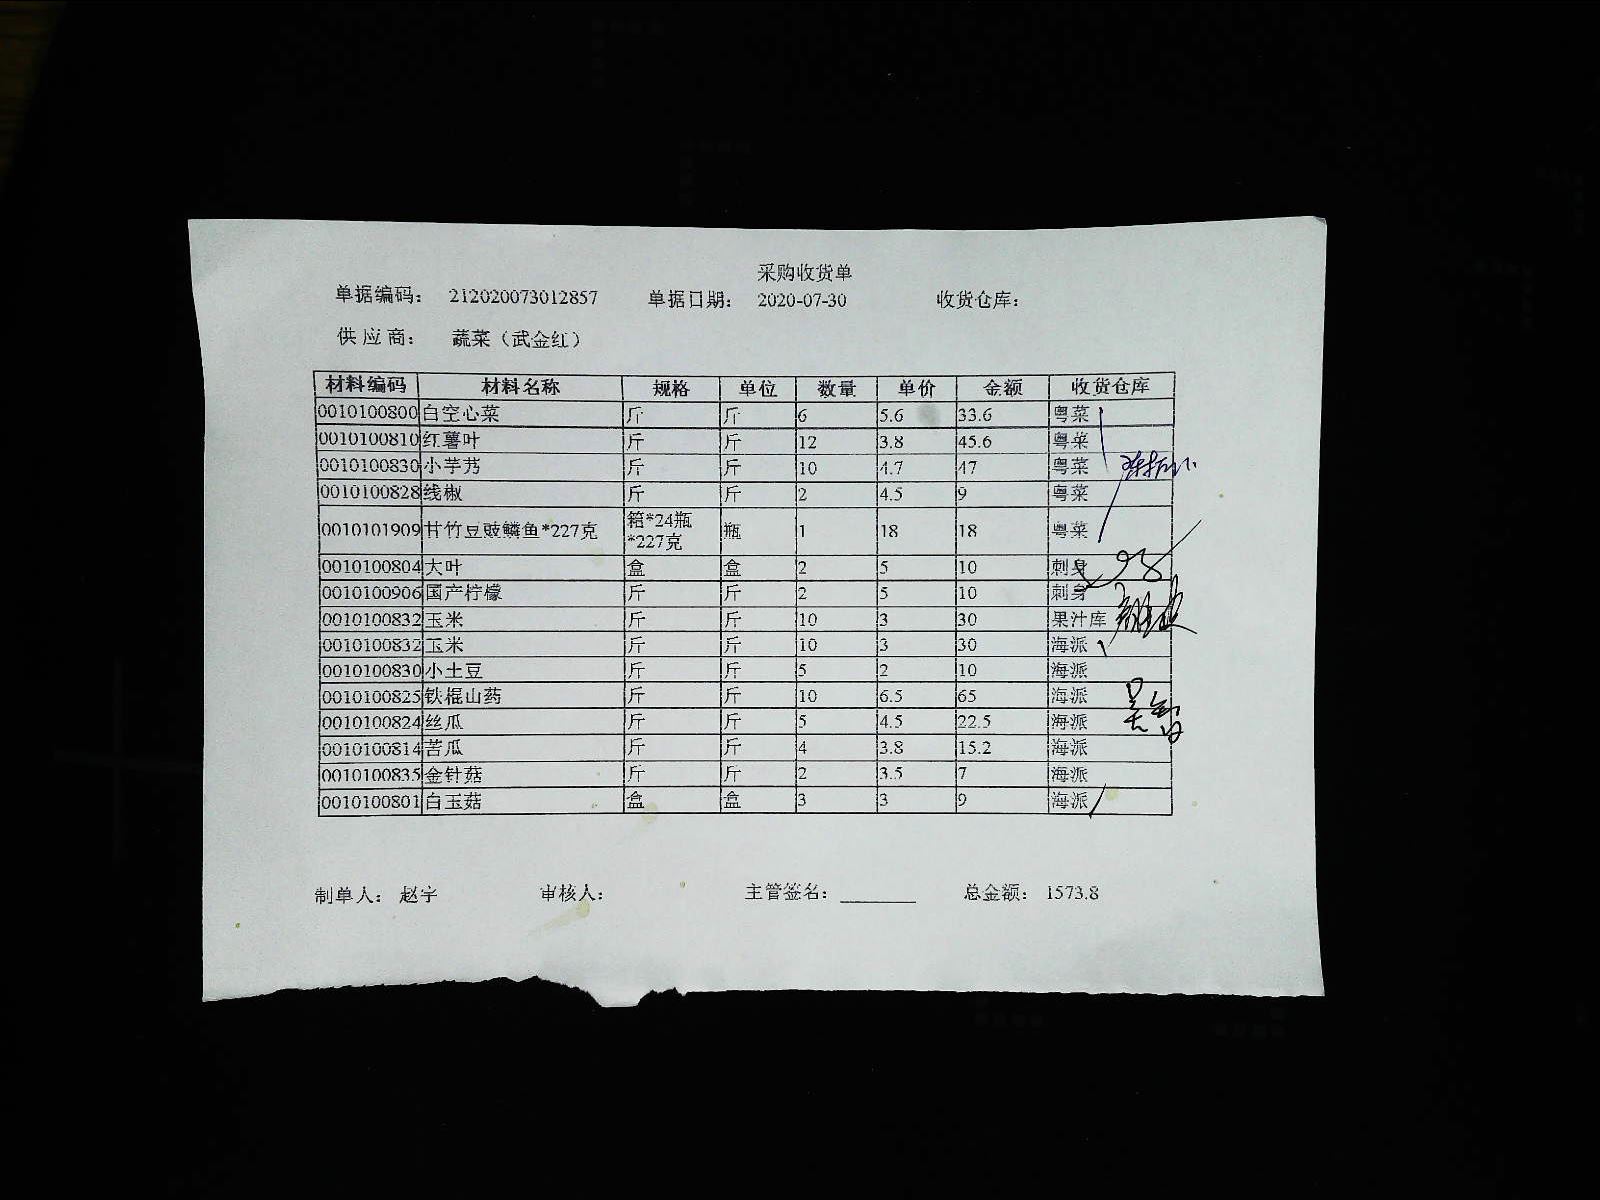 采购收货单
单据编码： 212020073012857 单据日期： 2020-07-30 收货仓库：
供 应 商： 蔬菜（武金红）
材料编码 材料名称 规格 单位 数量 单价 金额 收货仓库
0010100800 白空心菜 斤 斤 6 5.6 33.6 粤菜
0010100810 红薯叶 斤 斤 12 3.8 45.6 粤菜
0010100830 小芋艿 斤 斤 10 4.7 47 粤菜
0010100828 线椒 斤 斤 2 4.5 9 粤菜
0010101909 甘竹豆豉鳞鱼*227克 箱*24瓶*227克 瓶 1 18 18 粤菜
0010100804 大叶 盒 盒 2 5 10 刺身
0010100906 国产柠檬 斤 斤 2 5 10 刺身
0010100832 玉米 斤 斤 10 3 30 果汁库
0010100832 玉米 斤 斤 10 3 30 海派
0010100830 小土豆 斤 斤 5 2 10 海派
0010100825 铁棍山药 斤 斤 10 6.5 65 海派
0010100824 丝瓜 斤 斤 5 4.5 22.5 海派
0010100814 苦瓜 斤 斤 4 3.8 15.2 海派
0010100835 金针菇 斤 斤 2 3.5 7 海派
0010100801 白玉菇 盒 盒 3 3 9 海派
制单人： 赵宇 审核人： 主管签名： 总金额： 1573.8